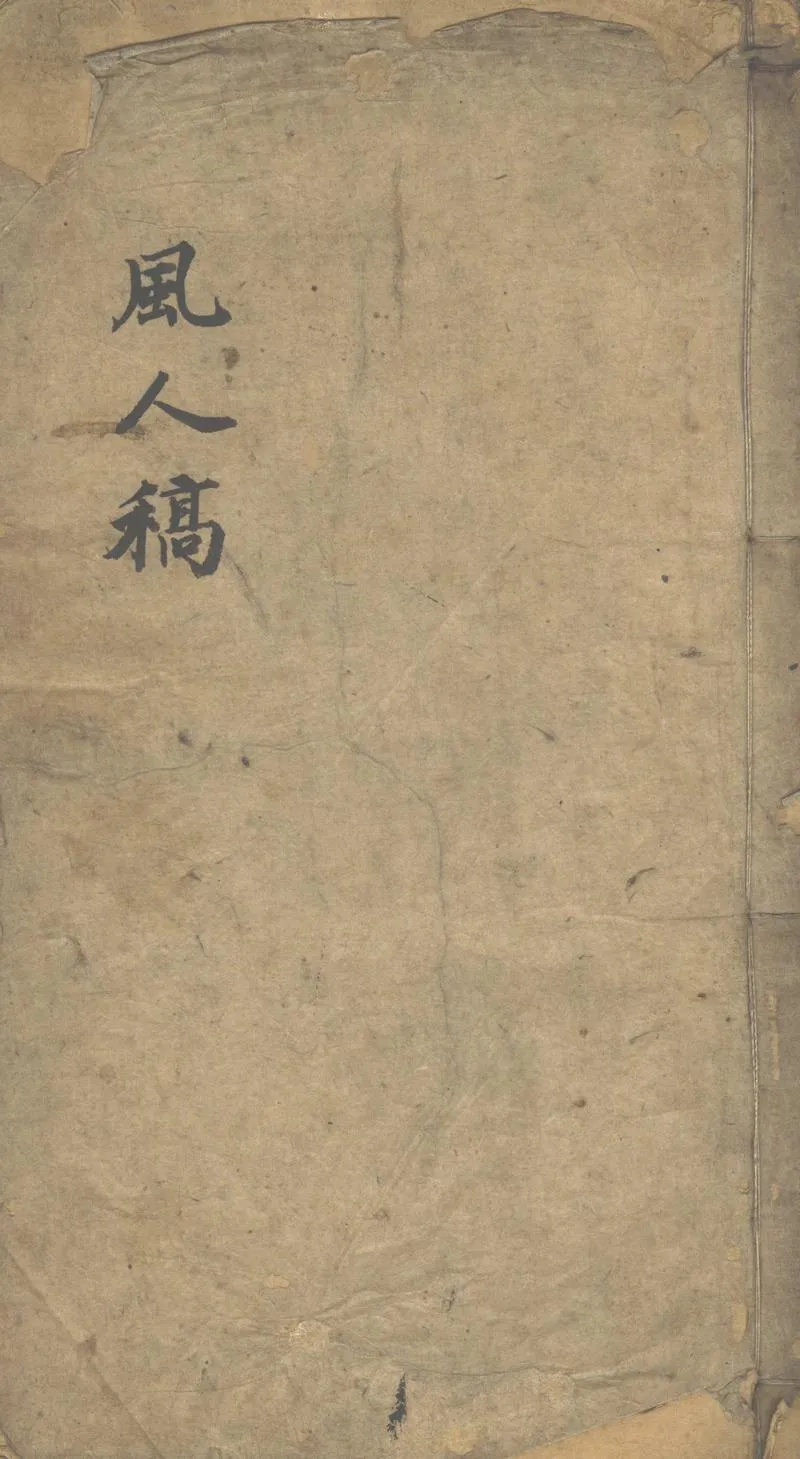 風人稿